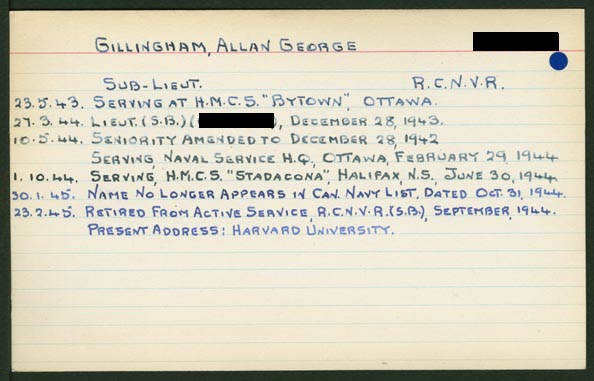 GILLINGHAM, ALLAN GEORGE
SUB-LIEUT. R.C.N.V.R.
23.5.43. SERVING AT H.M.C.S. "BYTOWN", OTTAWA.
27.3.44. LIEUT. (S.B.) ( ), DECEMBER 28, 1943.
10.5.44. SENIORITY AMENDED TO DECEMBER 28, 1942
SERVING, NAVAL SERVICE H.Q., OTTAWA, FEBRUARY 29, 1944
1.10.44. SERVING, H.M.C.S. "STADACONA", HALIFAX, N.S., JUNE 30, 1944.
30.1.45. NAME NO LONGER APPEARS IN CAN. NAVY LIST, DATED OCT. 31, 1944.
23.2.45. RETIRED FROM ACTIVE SERVICE, R.C.N.V.R. (S.B.), SEPTEMBER, 1944.
PRESENT ADDRESS: HARVARD UNIVERSITY.